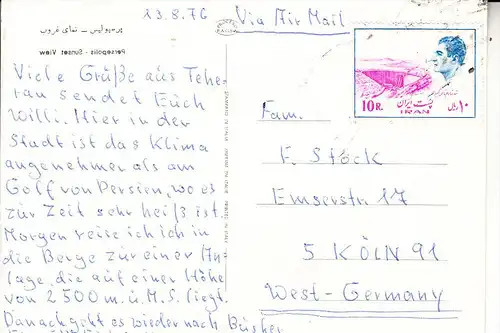 23.8.76
Via Air Mail
پرسپولیس - نمای غروب
Persepolis - Sunset View
Viele Grüße aus Tehe-
ran sendet Euch
Willi. Hier in der
Stadt ist das Klima
angenehmer als am
Golf von Persien, wo es
zur Zeit sehr heiß ist.
Morgen reise ich in
die Berge zu einer An-
lage, die auf einer Höhe
von 2500 m.ü.M.S. liegt.
Danach geht es wieder nach Bushehr
10R.
پست ایران
ریال ۱۰
IRAN
Fam.
F. Stöck
Emserstr. 17
5 KÖLN 91
West-Germany